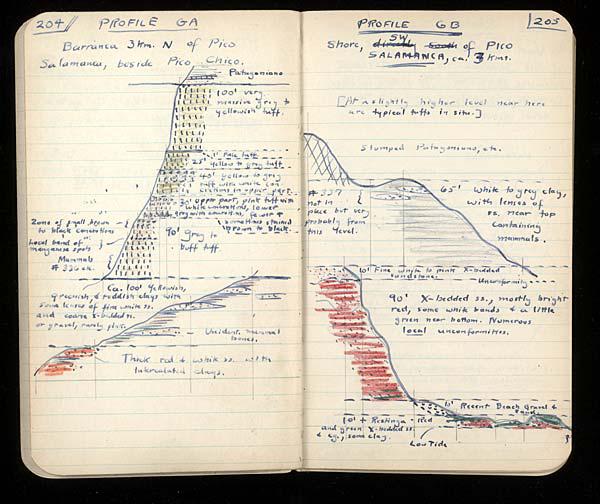 204 PROFILE GA
Barranca 3 km. N of Pico
Salamanca, beside Pico Chico.
Patagoniano
100' very
massive grey to
yellowish tuff.
1' Pale tuff
25' Yellow to grey tuff
40' yellow to grey
tuff with white con
cretions in upper part.
30' upper part, pink tuff with
white concretions, lower
grey with concretions,
sometimes stained
brown to black.
Zone of small brown
to black concretions
Local band of
manganese spots
90' Grey to
buff tuff.
Mammals
# 336 etc.
Ca. 100' Yellowish,
greenish, & reddish clay with
some lenses of fine white ss.
and coarse x-bedded ss.
or gravel, rarely pink.
Unident. mammal
bones.
Thick red & white ss. with
intercalated clays.
PROFILE GB 205
Shore, directly south SW of Pico
SALAMANCA, ca. 3 kms.
[At a slightly higher level near here
are typical tuffs in situ.]
Slumped Patagoniano, etc.
# 337
not in
place but very
probably from
this level.
65' White to grey clay,
with lenses of
ss. near top
containing
mammals.
10' Fine white to pink X-bedded
sandstone.
Unconformity
90' X-bedded ss., mostly bright
red, some white bands & a little
green near bottom. Numerous
local unconformities.
10' Recent Beach Gravel &
Sand
10' + Restinga - Red
and green X-bedded ss.
& cg., some clay.
Low Tide